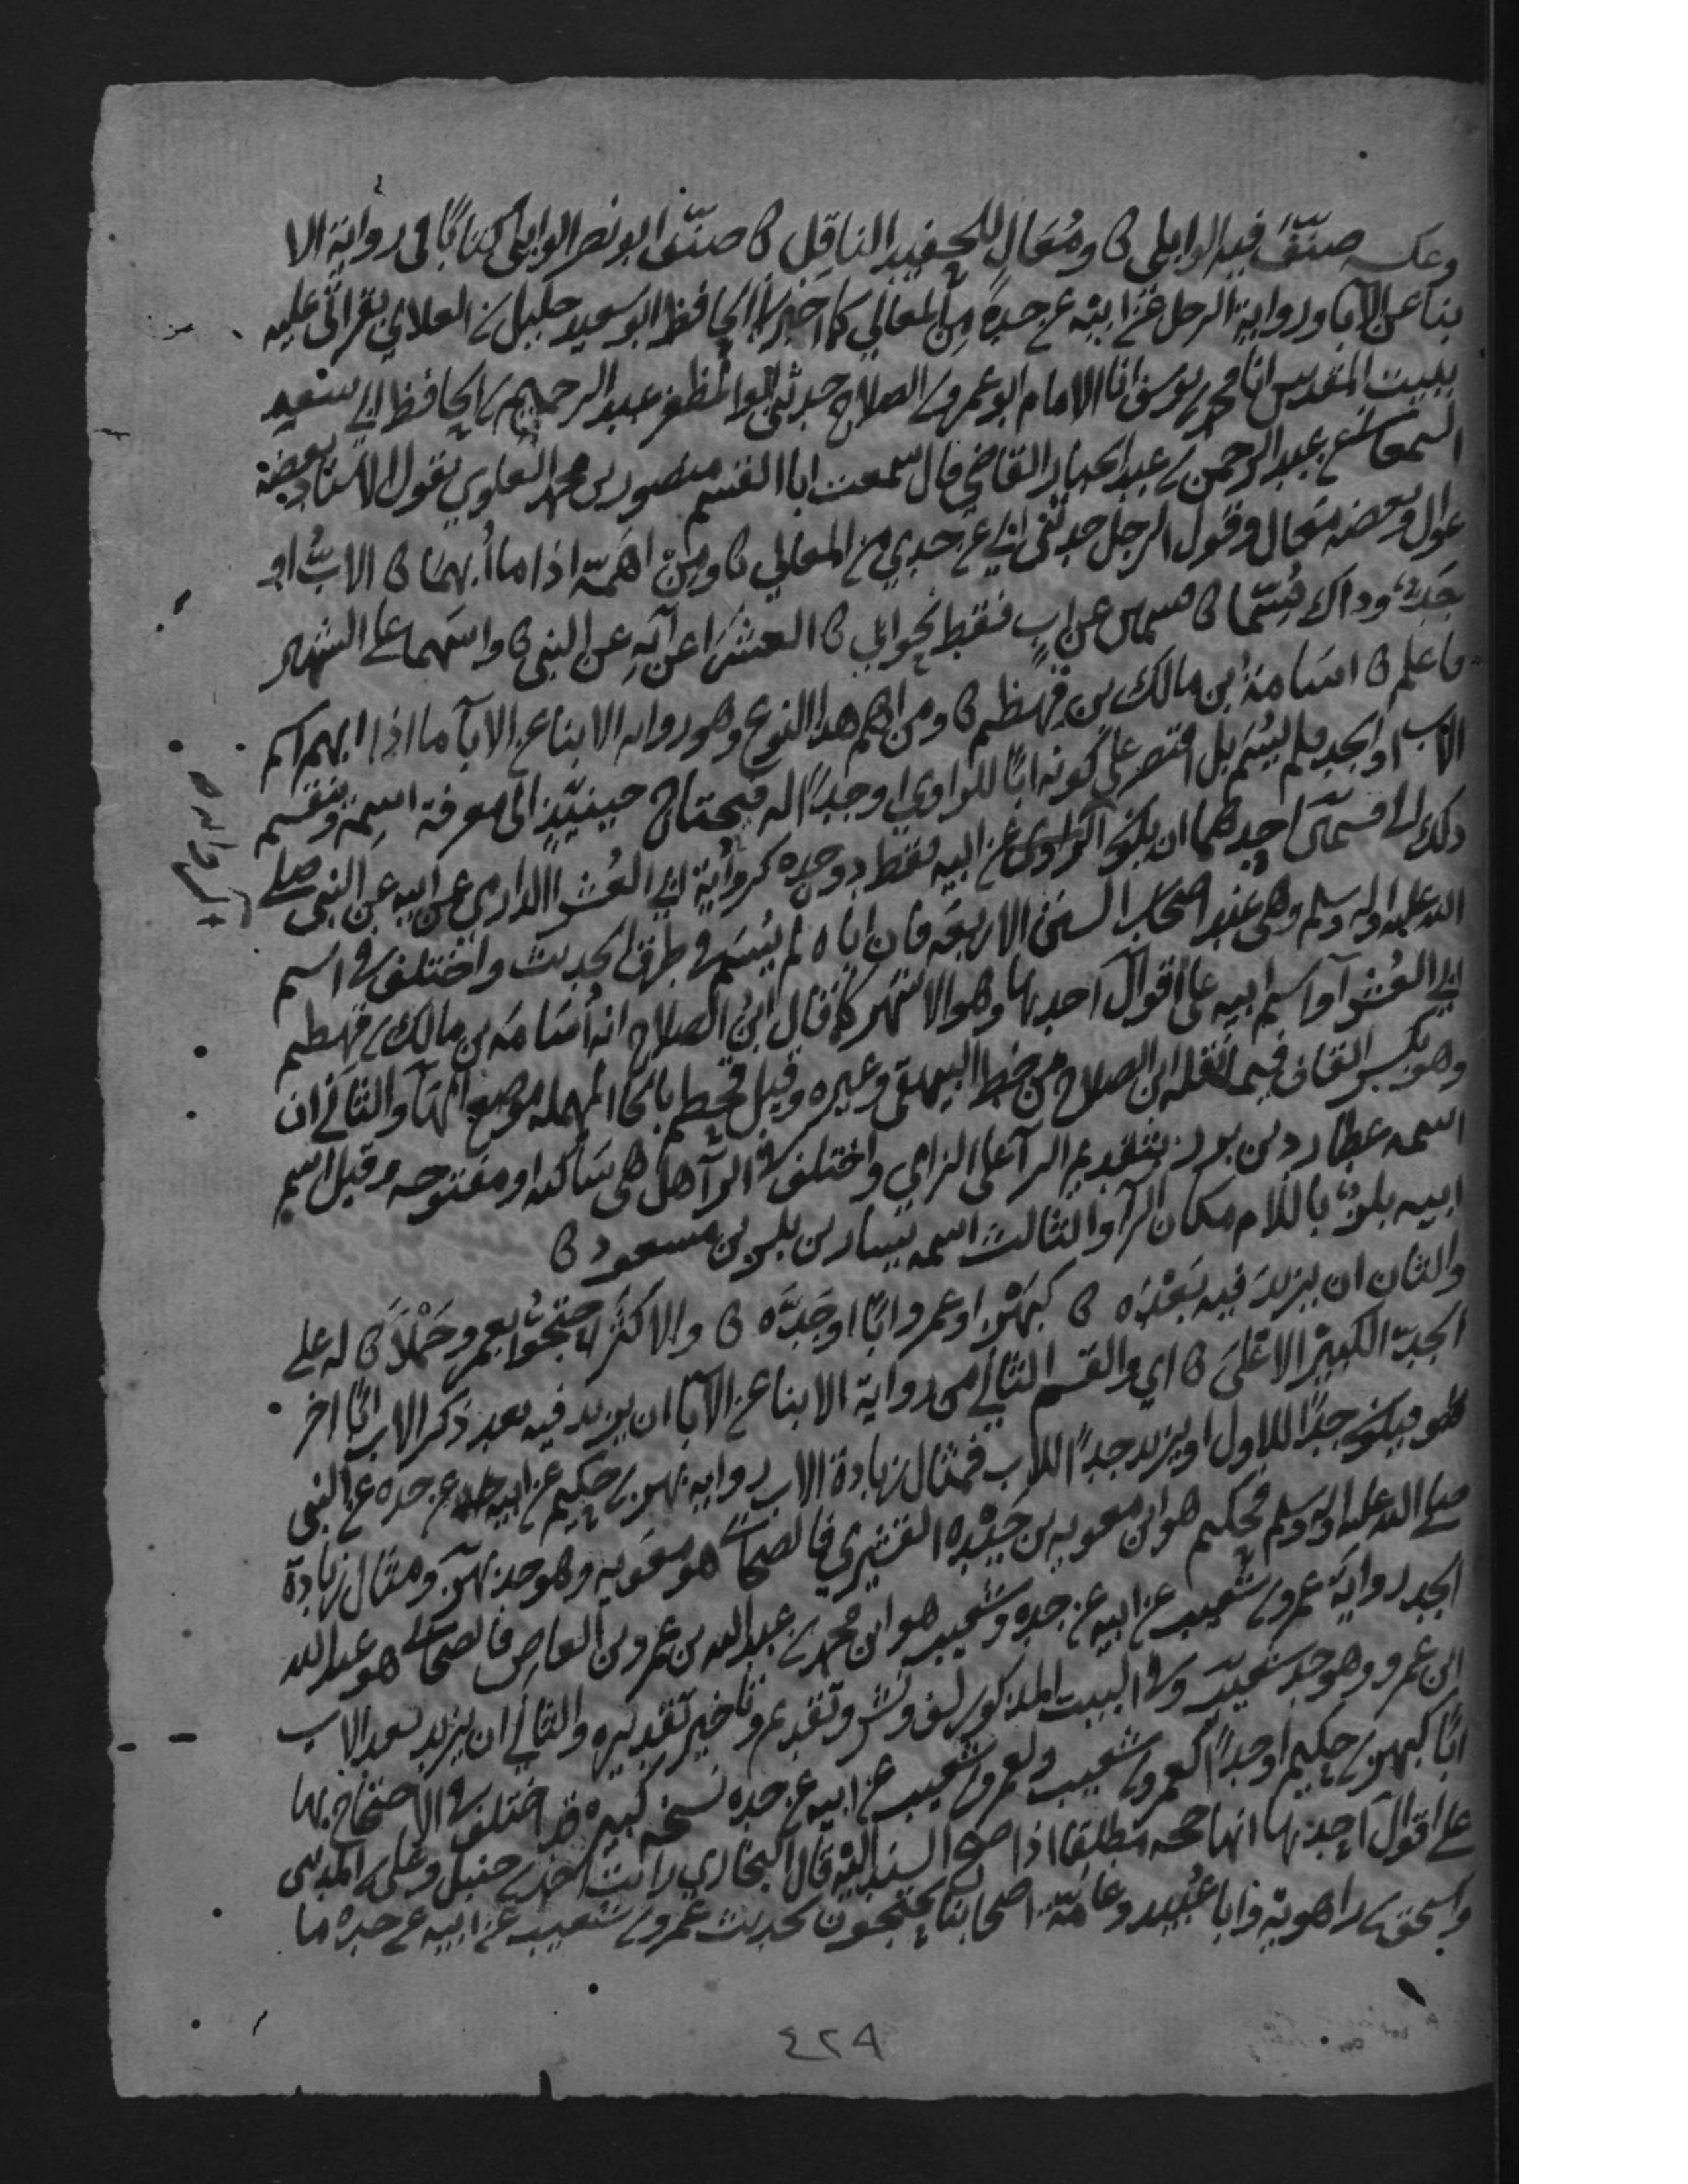 وعكسه صنّف فيه الوايلي ں ومُعَالٍ للحفيد الناقِل ں صنّف ابو نصر الوايلي كتابًا في رواية الا
بنا عن الآبا ورواية الرجل عن ابيه عن جدهِ من المعالي كما اخبرنا الحافظ ابو سعيد خليل بن العلاي بقراتي عليه
ببيت المقدس انا محمد بن يوسف انا الامام ابو عمرو بن الصلاح حدثني ابو المظفر عبد الرحيم بن الحافظ ابي سعيد
السمعاني عن عبد الرحمن بن عبد الجبار القاضي قال سمعت ابا القسم منصور بن محمد العلوي يقول الاسناد بعضه
عوال وبعضه معال وقول الرجل حدثني ابي عن جدي من المعالي ں ومِنْ اهَمّهِ اذا ما أُبهمَا ں الابُ او
جَدٌّ وذاك قُسِّمَا ں قسمين عن ابٍ فقط نحو ابي ں العُشَرَا عن ابَهِ عن النبي ں واسمهما على الشهير
فاعلم ں اسَامةُ بن مالك بن قِهطم ں ومن اهم هذا النوع وهو رواية الابنا عن الابآ ما اذا ابهم اسم
الاب او الجد فلم يُسَم بل اقتصر على كونه ابًا للراوي او جدًا له فيحتاج حينيذٍ الى معرفة اسمه وينقسم
ذلك الى قسمين احدهما ان يكون الراوي عن ابيه فقط دون جده كرواية ابي العُشرا الدارمي عن ابيه عن النبي صلى
الله عليه واله وسلم وهي عند اصحاب السنن الاربعة فان اباه لم يُسَم في طرق الحديث واختلف في اسم
ابي العُشرآ واسم ابيه على اقوال احدها وهو الاشهر كما قال ابنُ الصلاح انه اُسَامَه بن مالك بن قهطم
وهو بكسر القاف فيما نقله ابن الصلاح من خط البيهقي وغيره وقيل قحطم بالحا المهمله موضع الهآ والثاني ان
اسمه عطارد بن برز بتقديم الرآ على الزاي واختلف في الرآ هل هي ساكنه او مفتوحه وقيل اسم
ابيه بلزٌ باللام مكان الرآ والثالث اسمه يسار بن بلز بن مسعود ں
والثان ان يزيدَ فيه بَعْدَه ں كبَهْزٍ او عمرو ابًا او جَدَّه ں والاكثرُ احتجُّوا بعمرو حَمْلَا ں له على
الجدّ الكبيْر الاعْلَى ں اي والقسم الثاني من رواية الابنا عن الآبا ان يزيد فيه بعد ذكر الاب ابًا اخر
فيكون جدًا للاول او يزيد جدًا للاب فمثال زيادة الاب رواية بهز بن حكيم عن ابيه عن جده عن النبي
صلى الله عليه واله وسلم فحكيم هو ابن معويه بن حَيْدَه القشيري فالصحابي هو معَويه وهو جد بهز ومثال زيادة
الجد رواية عمرو بن شعيب عن ابيه عن جده وشعيب هو ابن محمد بن عبد الله بن عمرو بن العاص فالصحابي هو عبد الله
ابن عمرو وهو جد شعيب وفي البيت المذكور لف ونشر وتقديم وتاخير تقديره والثاني ان يزيد بعد الاب
ابًا كبهز بن حكيم او جدًا كعمرو بن شعيب ولعمرو بن شعيب عن ابيه عن جده نسخه كبيره قد اختلف في الاحتجاج بها
على اقوال احدها انها حجه مطلقا اذا صح السند اليه قال البخاري رايت احمد بن حنبل وعلي بن المديني
واسحق بن راهويه وابا عُبيد وعامّة اصحابنا يحتجون بحديث عمرو بن شعيب عن ابيه عن جده ما
٤٢٩